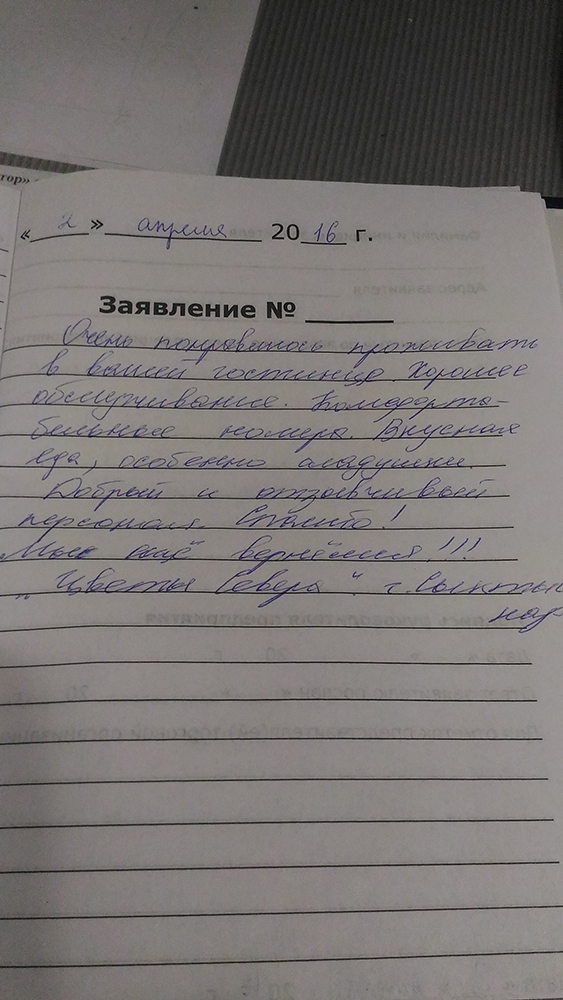 тор»
« 2 » апреля 2016 г.
Заявление № ______
Очень понравилось проживать
в вашей гостинице. Хорошее
обслуживание. Комфорта-
бельные номера. Вкусная
еда, особенно оладушки.
Добрый и отзывчивый
персонал. Спасибо!
Мы ещё вернёмся!!!
„Цветы Севера". г. Сыктыв